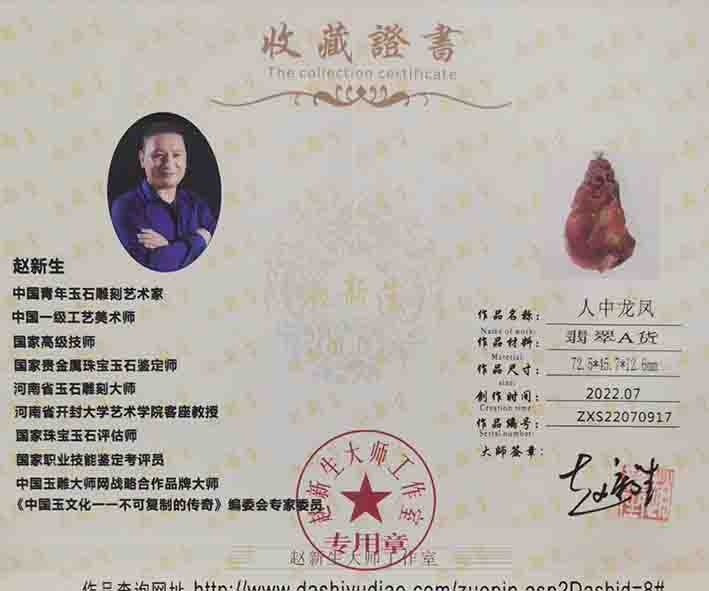 收藏證書
The collection certificate
赵新生
中国青年玉石雕刻艺术家
中国一级工艺美术师
国家高级技师
国家贵金属珠宝玉石鉴定师
河南省玉石雕刻大师
河南省开封大学艺术学院客座教授
国家珠宝玉石评估师
国家职业技能鉴定考评员
中国玉雕大师网战略合作品牌大师
《中国玉文化一一不可复制的传奇》编委会专家委员
作品名称： 人中龙凤
Name of work:
作品材料： 翡翠A货
Material:
作品尺寸： 72.5*45.7*12.6mm
size:
创作时间： 2022.07
Creation time:
作品编号： ZXS22070917
Serial number:
大师签章：
赵新生
赵新生大师工作室
专用章
赵新生大师工作室
作品查询网址 http://www.dashiyudiao.com/zuopin.asp?Dashid=8#